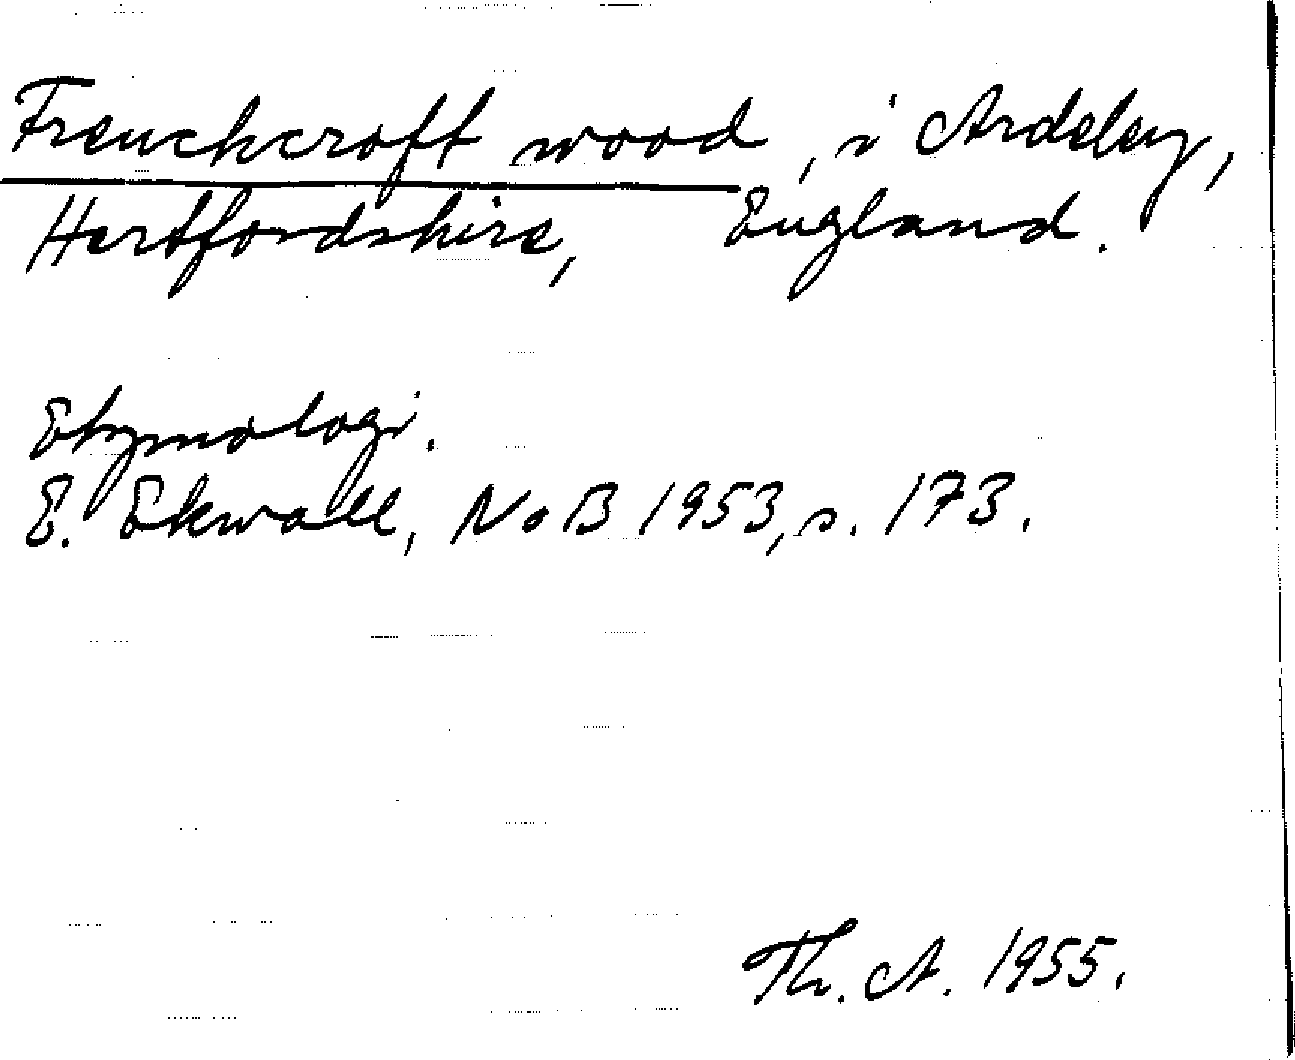 Frenchcroft wood, i Ardeley,
Hertfordshire, England.
Etymologi.
E. Ekwall, NoB 1953, s. 173.
Th. A. 1955.